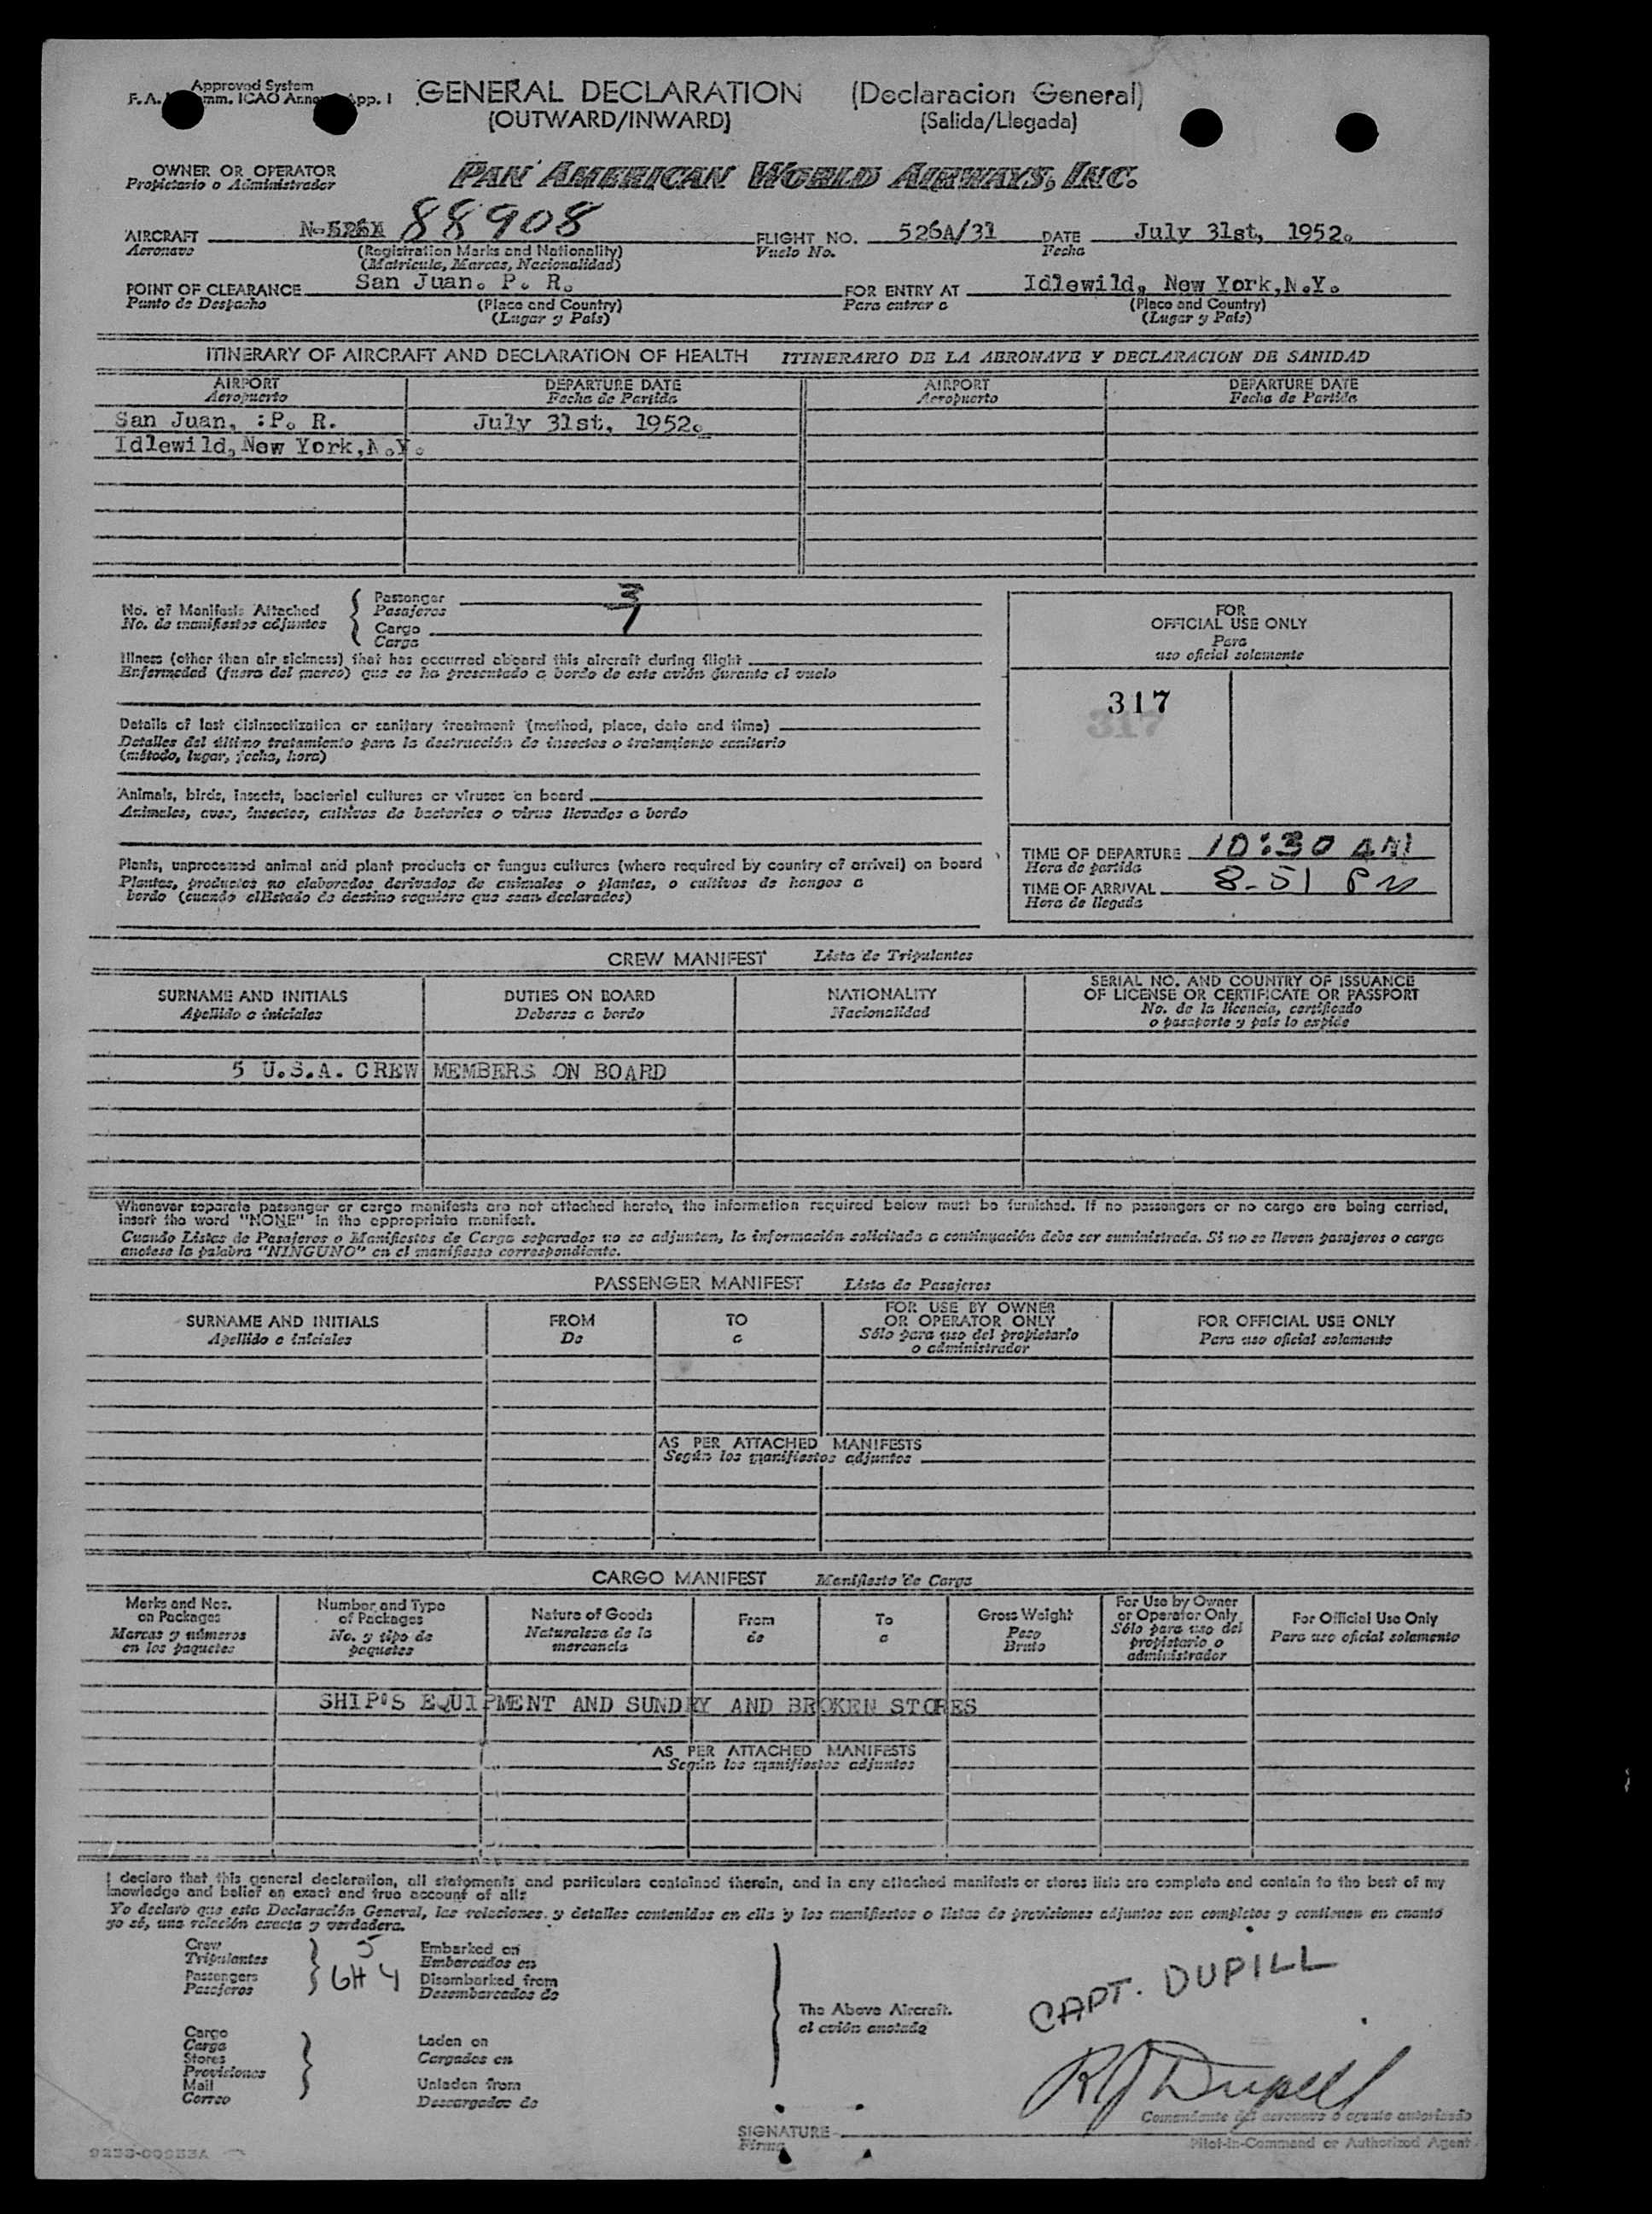 Approved System
F. A. mm. ICAO Anne App. I
GENERAL DECLARATION (Declaracion General)
(OUTWARD/INWARD) (Salida/Llegada)
OWNER OR OPERATOR
Propietario o Administrador
PAN AMERICAN WORLD AIRWAYS, INC.
AIRCRAFT N- 88908 FLIGHT NO. 526A/31 DATE July 31st, 1952.
Aeronave (Registration Marks and Nationality) Vuelo No. Fecha
(Matricula, Marcas, Nacionalidad)
POINT OF CLEARANCE San Juan. P. R. FOR ENTRY AT Idlewild, New York,N.Y.
Punto de Despacho (Place and Country) Para entrar a (Place and Country)
(Lugar y País) (Lugar y País)
ITINERARY OF AIRCRAFT AND DECLARATION OF HEALTH ITINERARIO DE LA AERONAVE Y DECLARACION DE SANIDAD
AIRPORT DEPARTURE DATE AIRPORT DEPARTURE DATE
Aeropuerto Fecha de Partida Aeropuerto Fecha de Partida
San Juan, :P. R. July 31st, 1952.
Idlewild,New York,N.Y.
No. of Manifests Attached
No. de manifiestos adjuntos
Passenger 3
Pasajeros
Cargo 1
Carga
Illness (other than air sickness) that has occurred aboard this aircraft during flight
Enfermedad (fuera del mareo) que se ha presentado a bordo de este avión durante el vuelo
Details of last disinsectization or sanitary treatment (method, place, date and time)
Detalles del último tratamiento para la destrucción de insectos o tratamiento sanitario
(método, lugar, fecha, hora)
Animals, birds, insects, bacterial cultures or viruses on board
Animales, aves, insectos, cultivos de bacterias o virus llevados a bordo
Plants, unprocessed animal and plant products or fungus cultures (where required by country of arrival) on board
Plantas, productos no elaborados derivados de animales o plantas, o cultivos de hongos a
bordo (cuando el Estado de destino requiere que sean declarados)
FOR
OFFICIAL USE ONLY
Para
uso oficial solamente
317
317
TIME OF DEPARTURE 10:30 AM
Hora de partida
TIME OF ARRIVAL 8-51 PM
Hora de llegada
CREW MANIFEST Lista de Tripulantes
SURNAME AND INITIALS DUTIES ON BOARD NATIONALITY SERIAL NO. AND COUNTRY OF ISSUANCE
Apellido e iniciales Deberes a bordo Nacionalidad OF LICENSE OR CERTIFICATE OR PASSPORT
No. de la licencia, certificado
o pasaporte y país lo expide
5 U.S.A. CREW MEMBERS ON BOARD
Whenever separate passenger or cargo manifests are not attached hereto, the information required below must be furnished. If no passengers or no cargo are being carried,
insert the word "NONE" in the appropriate manifest.
Cuando Listas de Pasajeros o Manifiestos de Carga separados no se adjuntan, la información solicitada a continuación debe ser suministrada. Si no se lleven pasajeros o carga
anotese la palabra "NINGUNO" en el manifiesto correspondiente.
PASSENGER MANIFEST Lista de Pasajeros
SURNAME AND INITIALS FROM TO FOR USE BY OWNER FOR OFFICIAL USE ONLY
Apellido e iniciales De a OR OPERATOR ONLY Para uso oficial solamente
Sólo para uso del propietario
o administrador
AS PER ATTACHED MANIFESTS
Según los manifiestos adjuntos
CARGO MANIFEST Manifiesto de Carga
Marks and Nos. on Packages
Marcas y números en los paquetes
Number and Type of Packages
No. y tipo de paquetes
Nature of Goods
Naturaleza de la mercancía
From
de
To
a
Gross Weight
Peso
Bruto
For Use by Owner or Operator Only
Sólo para uso del propietario o administrador
For Official Use Only
Para uso oficial solamente
SHIP'S EQUIPMENT AND SUNDRY AND BROKEN STORES
AS PER ATTACHED MANIFESTS
Según los manifiestos adjuntos
I declare that this general declaration, all statements and particulars contained therein, and in any attached manifests or stores lists are complete and contain to the best of my
knowledge and belief an exact and true account of all:
Yo declaro que esta Declaración General, las relaciones y detalles contenidos en ella y los manifiestos o listas de provisiones adjuntos son completos y contienen en cuanto
yo sé, una relación exacta y verdadera.
Crew 5 Embarked on
Tripulantes Embarcados en
Passengers 6H 4 Disembarked from
Pasajeros Desembarcados de
The Above Aircraft.
el avión anotado
Cargo
Carga
Stores
Provisiones
Mail
Correo
Laden on
Cargados en
Unladen from
Descargados de
CAPT. DUPILL
R J Dupill
Comandante del aeronave o agente autorizado
SIGNATURE
Firma
Pilot-in-Command or Authorized Agent